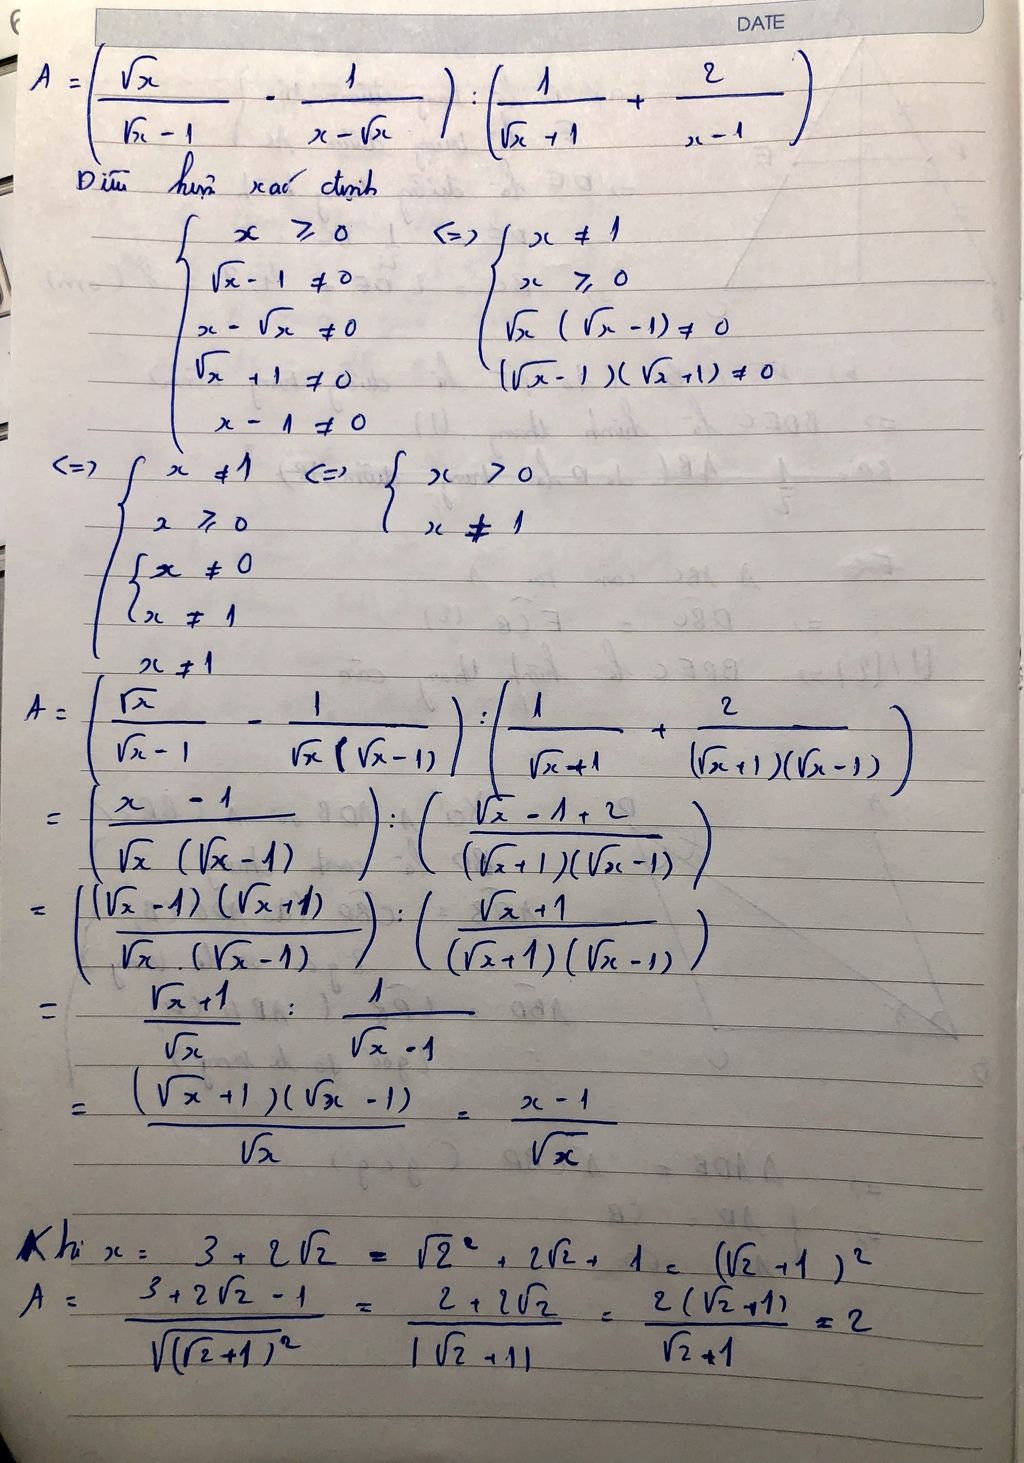 DATE
A = (√x / (√x - 1) - 1 / (x - √x)) : (1 / (√x + 1) + 2 / (x - 1))
Điều kiện xác định
{ x ⩾ 0 <=> { x ≠ 1
√x - 1 ≠ 0 x ⩾ 0
x - √x ≠ 0 √x (√x - 1) ≠ 0
√x + 1 ≠ 0 (√x - 1)(√x + 1) ≠ 0
x - 1 ≠ 0
<=> { x ≠ 1 <=> { x > 0
x ⩾ 0 x ≠ 1
{ x ≠ 0
x ≠ 1
x ≠ 1
A = (√x / (√x - 1) - 1 / (√x (√x - 1))) : (1 / (√x + 1) + 2 / ((√x + 1)(√x - 1)))
= ((x - 1) / (√x (√x - 1))) : ((√x - 1 + 2) / ((√x + 1)(√x - 1)))
= ((√x - 1)(√x + 1) / (√x . (√x - 1))) : ((√x + 1) / ((√x + 1)(√x - 1)))
= (√x + 1) / √x : 1 / (√x - 1)
= (√x + 1)(√x - 1) / √x = (x - 1) / √x
Khi x = 3 + 2√2 = √2² + 2√2 + 1 = (√2 + 1)²
A = (3 + 2√2 - 1) / √((√2 + 1)²) = (2 + 2√2) / |√2 + 1| = 2(√2 + 1) / (√2 + 1) = 2